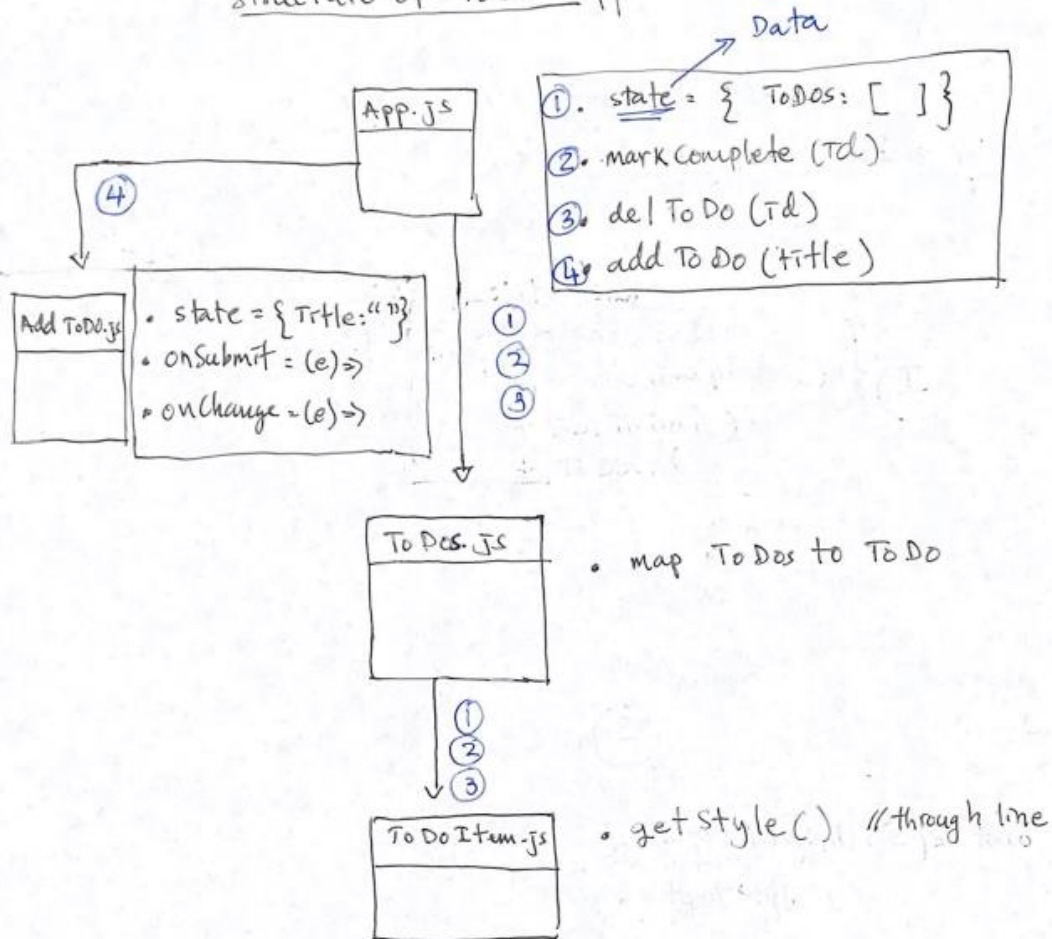 Data
App.js
① . state = { ToDos: [ ] }
② . markComplete (Id)
③ . delToDo (Id)
④ . addToDo (title)
④
Add ToDo.js
. state = { Title: “ ” }
. onSubmit = (e) =>
. onChange = (e) =>
①
②
③
ToDos.JS
. map ToDos to ToDo
①
②
③
ToDoItem.js
. getStyle() // through line